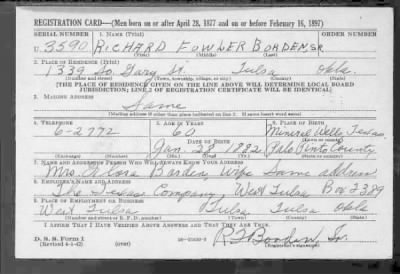 REGISTRATION CARD—(Men born on or after April 28, 1877 and on or before February 16, 1897)
SERIAL NUMBER 1. NAME (Print) ORDER NUMBER
U 3590 RICHARD FOWLER BORDEN, SR.
(First) (Middle) (Last)
2. PLACE OF RESIDENCE (Print)
1339 So. Gary St. Tulsa Okla.
(Number and street) (Town, township, village, or city) (County) (State)
[THE PLACE OF RESIDENCE GIVEN ON THE LINE ABOVE WILL DETERMINE LOCAL BOARD
JURISDICTION; LINE 2 OF REGISTRATION CERTIFICATE WILL BE IDENTICAL]
3. MAILING ADDRESS
Same
(Mailing address if other than place indicated on line 2. If same insert word same)
4. TELEPHONE 5. AGE IN YEARS 6. PLACE OF BIRTH
6-2772 60 Mineral Wells, Texas
DATE OF BIRTH (Town or county)
Jan. 28 1882 Palo Pinto County
(Exchange) (Number) (Mo.) (Day) (Yr.) (State or country)
7. NAME AND ADDRESS OF PERSON WHO WILL ALWAYS KNOW YOUR ADDRESS
Mrs. Borden, Wife Same address
8. EMPLOYER'S NAME AND ADDRESS
The Texas Company, West Tulsa Box 2389
9. PLACE OF EMPLOYMENT OR BUSINESS
West Tulsa Tulsa Tulsa Okla
(Number and street or R. F. D. number) (Town) (County) (State)
I AFFIRM THAT I HAVE VERIFIED ABOVE ANSWERS AND THAT THEY ARE TRUE.
D. S. S. Form 1
(Revised 4-1-42) (over) R. F. Borden, Sr.
(Registrant's signature)